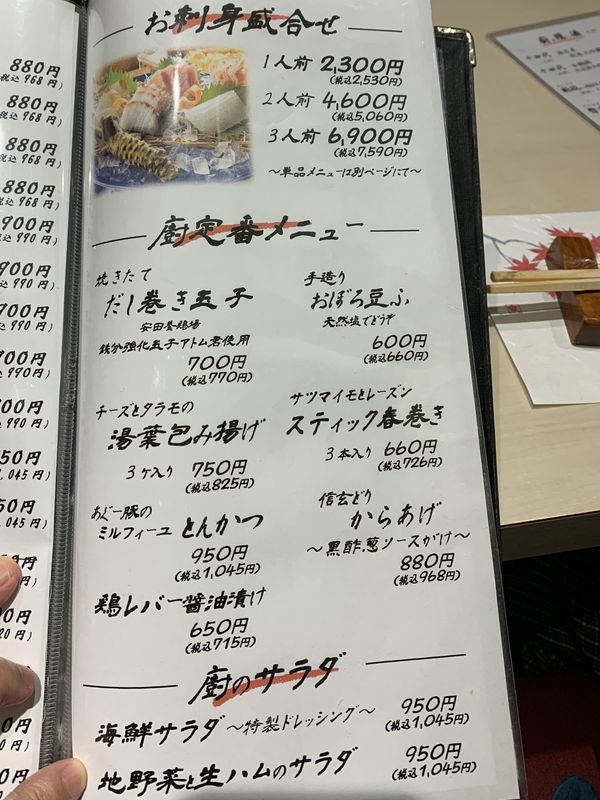 お刺身盛合せ
1人前 2,300円
(税込2,530円)
2人前 4,600円
(税込5,060円)
3人前 6,900円
(税込7,590円)
〜単品メニューは別ページにて〜
廚定番メニュー
焼きたて
だし巻き玉子
安田養鶏場
鉄分強化玉子アトム君使用
700円
(税込770円)
手造り
おぼろ豆ふ
天然塩でどうぞ
600円
(税込660円)
チーズとタラモの
湯葉包み揚げ
3ケ入り 750円
(税込825円)
サツマイモとレーズン
スティック春巻き
3本入り 660円
(税込726円)
あぐー豚の
ミルフィーユ とんかつ
950円
(税込1,045円)
信玄どり
からあげ
〜黒酢葱ソースがけ〜
880円
(税込968円)
鶏レバー醤油漬け
650円
(税込715円)
廚のサラダ
海鮮サラダ 〜特製ドレッシング〜 950円
(税込1,045円)
地野菜と生ハムのサラダ 950円
(税込1,045円)
880円
税込 968円)
880円
税込 968円)
880円
税込 968円)
880円
税込 968円)
900円
税込 990円)